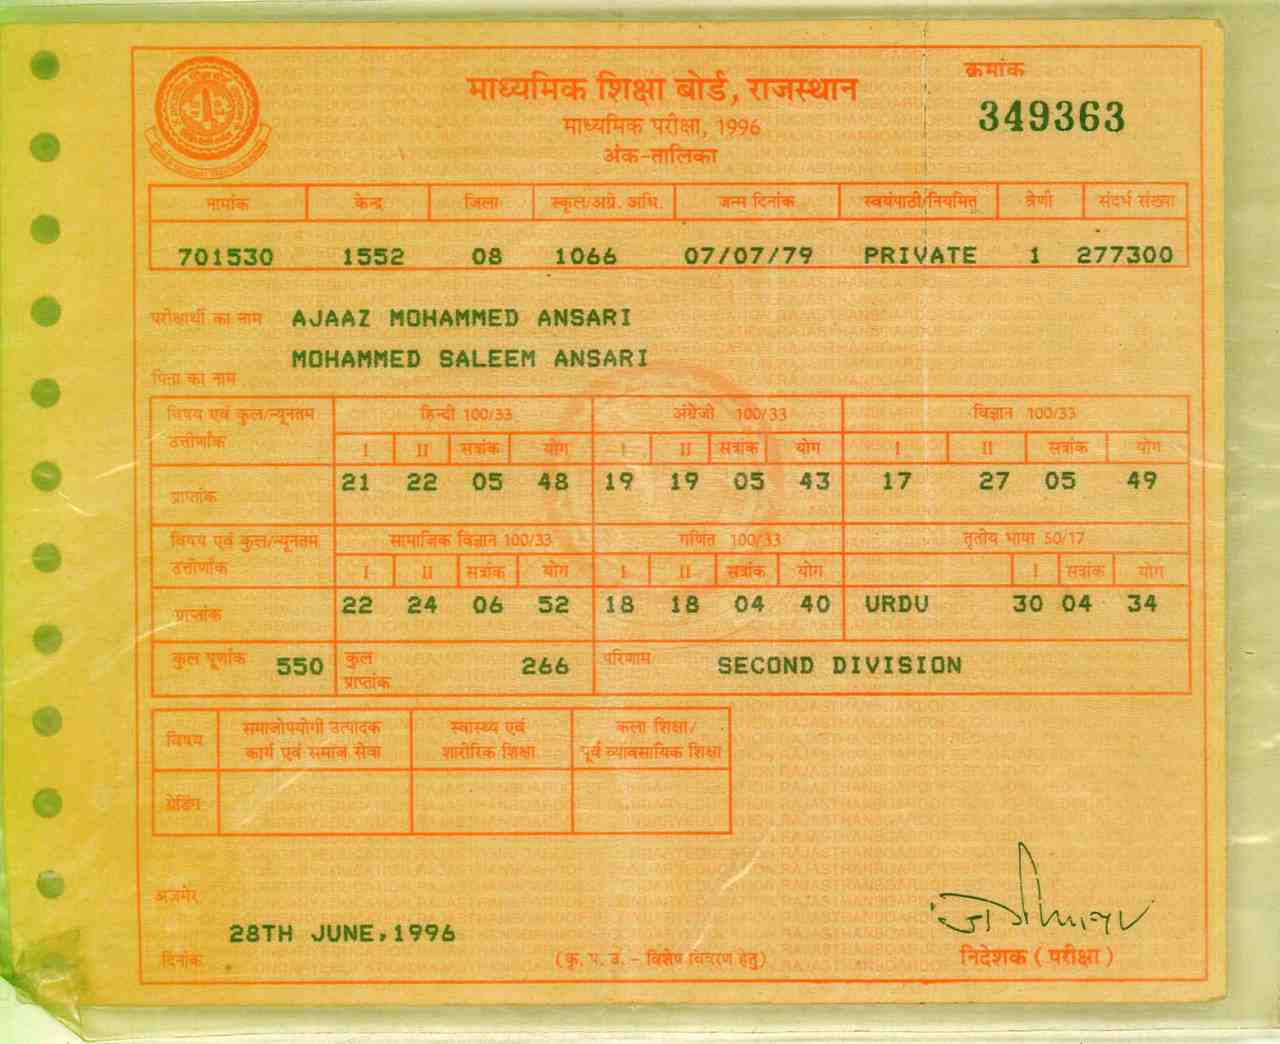 माध्यमिक शिक्षा बोर्ड, राजस्थान
क्रमांक
349363
माध्यमिक परीक्षा, 1996
अंक-तालिका
नामांक केन्द्र जिला स्कूल/अग्रे. अधि. जन्म दिनांक स्वयंपाठी/नियमित श्रेणी संदर्भ संख्या
701530 1552 08 1066 07/07/79 PRIVATE 1 277300
परीक्षार्थी का नाम AJAAZ MOHAMMED ANSARI
MOHAMMED SALEEM ANSARI
पिता का नाम
विषय एवं कुल/न्यूनतम हिन्दी 100/33 अंग्रेजी 100/33 विज्ञान 100/33
उत्तीर्णांक I II सत्रांक योग I II सत्रांक योग I II सत्रांक योग
प्राप्तांक 21 22 05 48 19 19 05 43 17 27 05 49
विषय एवं कुल/न्यूनतम सामाजिक विज्ञान 100/33 गणित 100/33 तृतीय भाषा 50/17
उत्तीर्णांक I II सत्रांक योग I II सत्रांक योग I सत्रांक योग
प्राप्तांक 22 24 06 52 18 18 04 40 URDU 30 04 34
कुल पूर्णांक 550 कुल प्राप्तांक 266 परिणाम SECOND DIVISION
विषय समाजोपयोगी उत्पादक कार्य एवं समाज सेवा स्वास्थ्य एवं शारीरिक शिक्षा कला शिक्षा/ पूर्व व्यावसायिक शिक्षा
ग्रेडिंग
अजमेर
28TH JUNE,1996
दिनांक (कृ. प. उ. - विशेष विवरण हेतु) निदेशक ( परीक्षा )